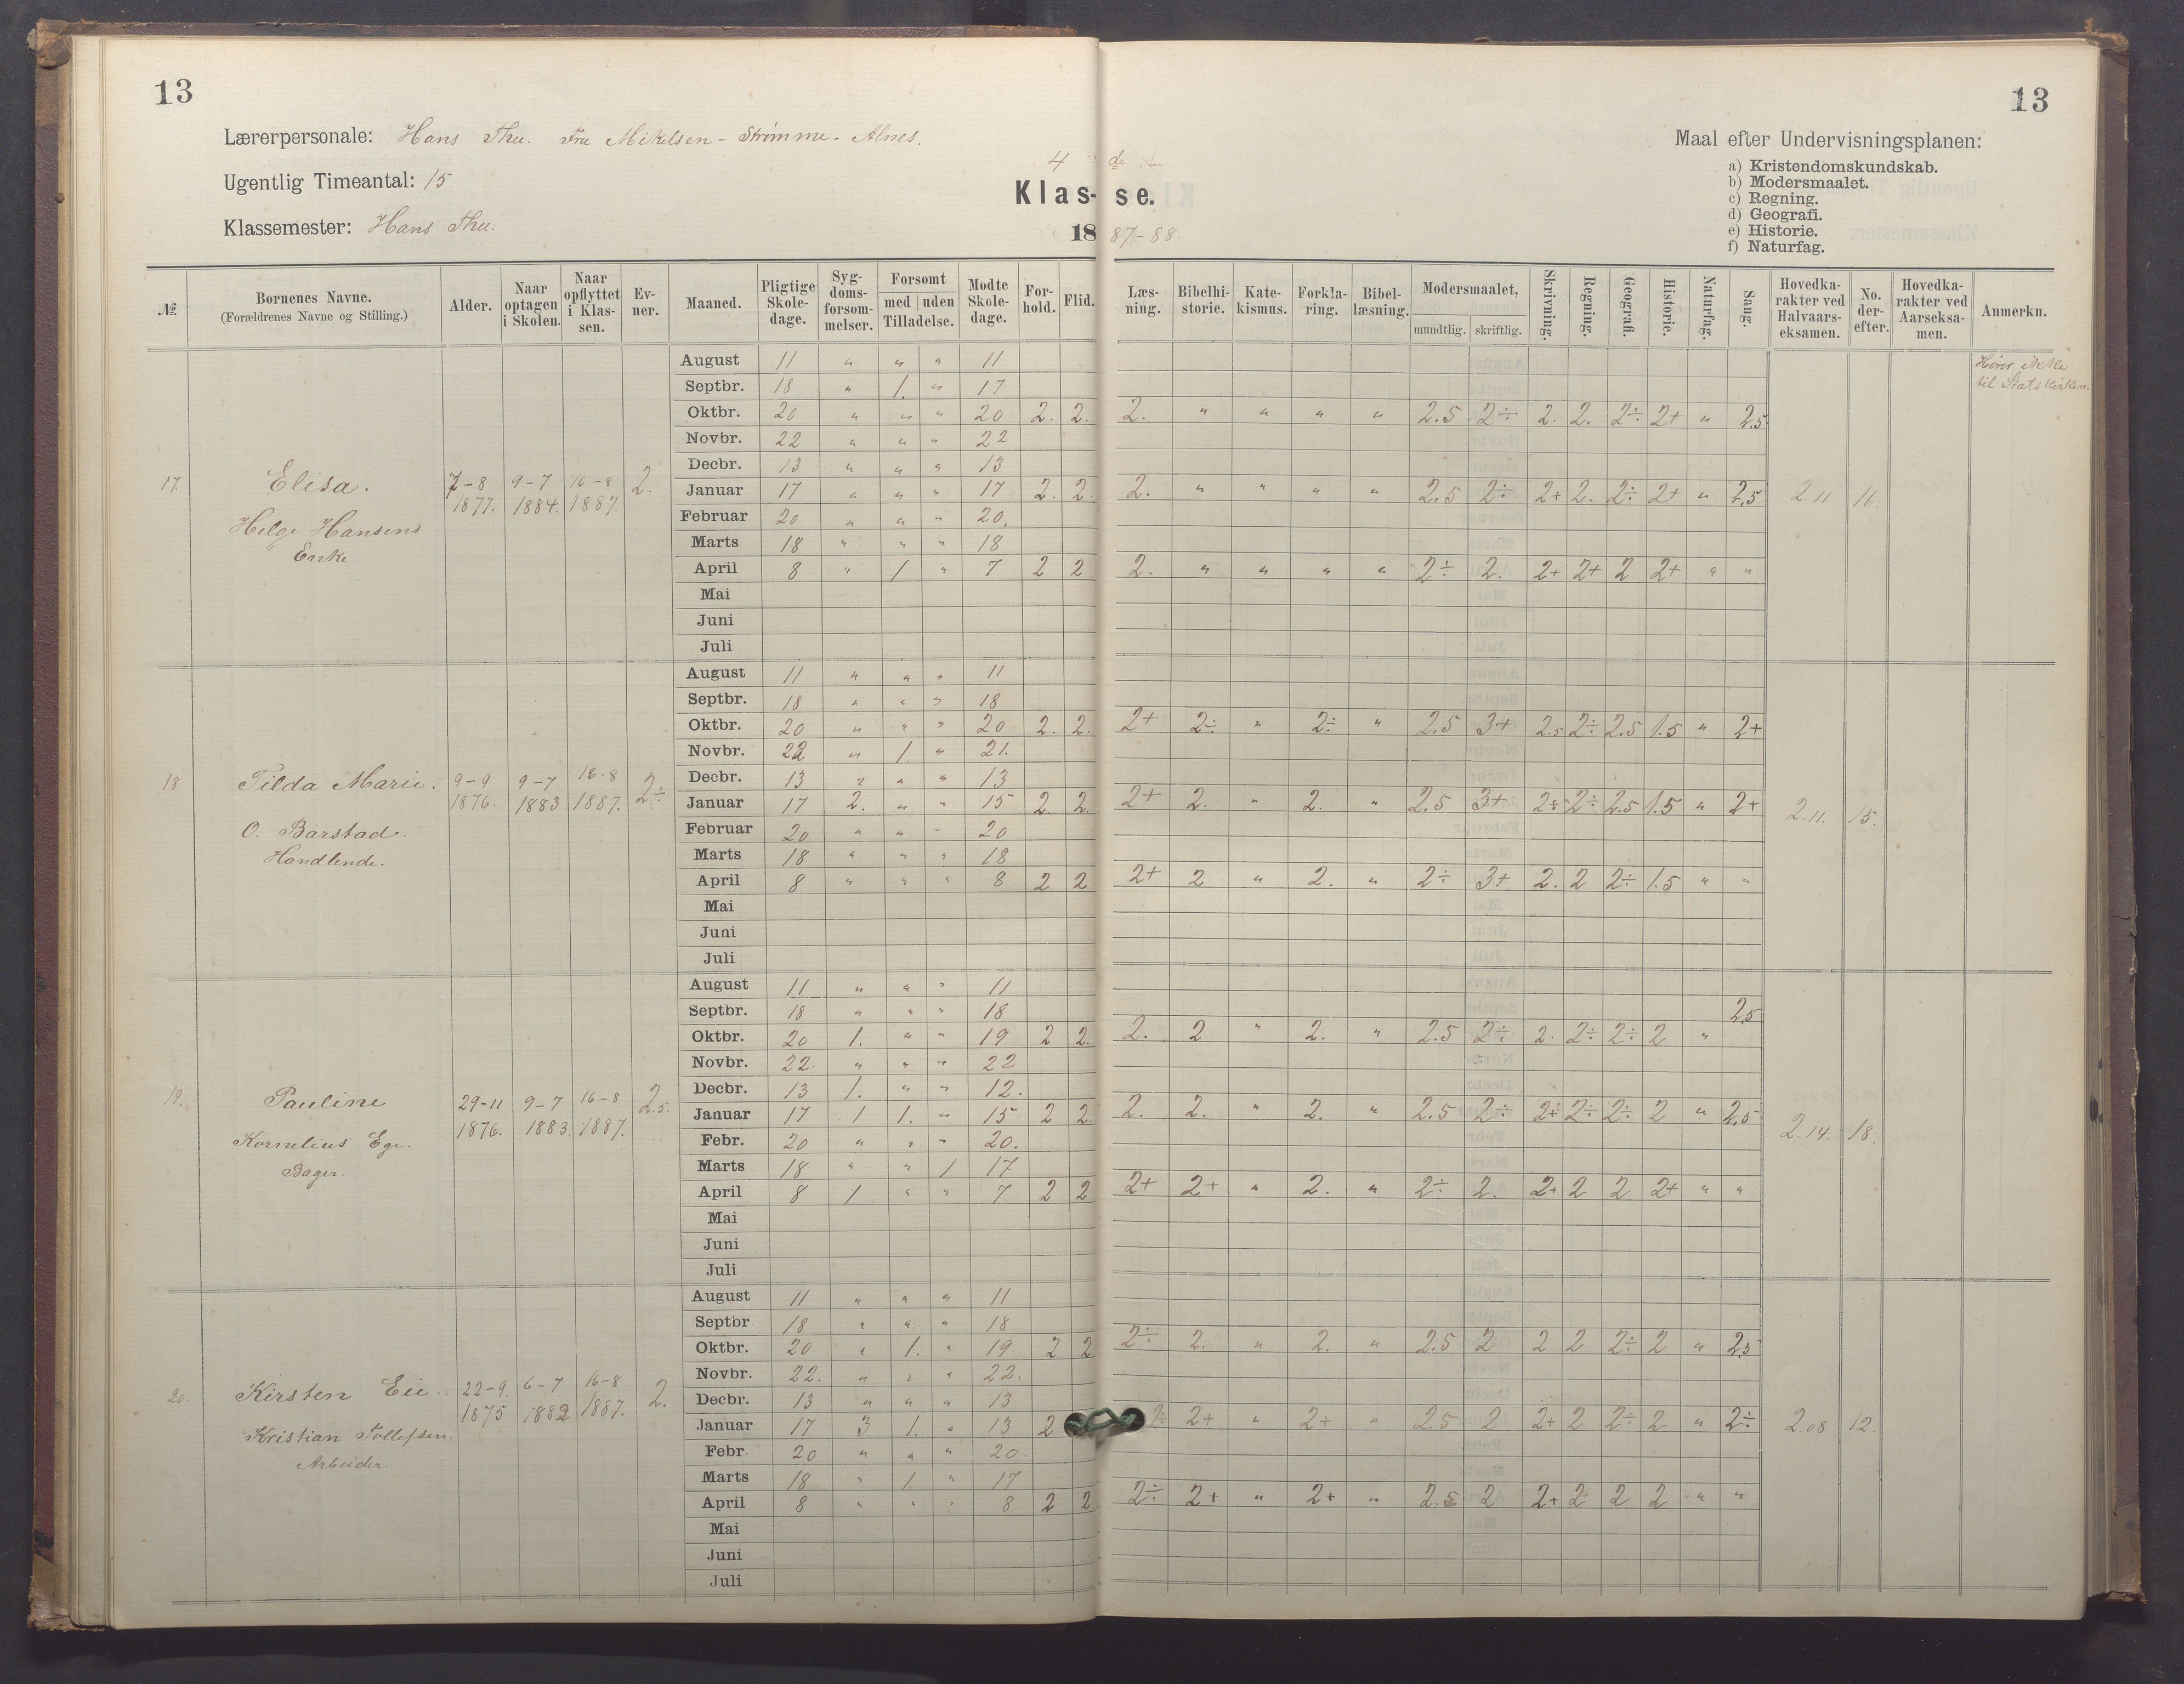 13
13
Lærerpersonale: Hans Thu. Fru Mikelsen - Strømme - Alnes.
Ugentlig Timeantal: 15
Klassemester: Hans Thu.
4 de
Klas- se.
18 87-88.
Maal efter Undervisningsplanen:
a) Kristendomskundskab.
b) Modersmaalet.
c) Regning.
d) Geografi.
e) Historie.
f) Naturfag.
№ Børnenes Navne. (Forældrenes Navne og Stilling.) Alder. Naar optagen i Skolen. Naar opflyttet i Klassen. Evner. Maaned. Pligtige Skoledage. Sygdomsforsømmelser. Forsømt med uden Tilladelse. Mødte Skoledage. Forhold. Flid. Læsning. Bibelhistorie. Katekismus. Forklaring. Bibellæsning. Modersmaalet, mundtlig. skriftlig. Skrivning. Regning. Geografi. Historie. Naturfag. Sang. Hovedkarakter ved Halvaarseksamen. No. derefter. Hovedkarakter ved Aarseksamen. Anmerkn.
17. Elisa. 7-8 1877. 9-7 1884. 16-8 1887. 2.
Helge Hansens
Enke.
Hører ikke
til Statskirken.
August 11 " " " 11
Septbr. 18 " 1. " 17
Oktbr. 20 " " " 20 2. 2. 2. " " " " 2.5 2÷ 2. 2. 2÷ 2+ " 2.5
Novbr. 22 " " " 22
Decbr. 13 " " " 13
Januar 17 " " " 17 2. 2. 2. " " " " 2.5 2÷ 2+ 2. 2÷ 2+ " 2.5 2.11 16.
Februar 20 " " " 20.
Marts 18 " " " 18
April 8 " 1 " 7 2 2 2. " " " " 2÷ 2. 2+ 2+ 2 2+ " "
Mai
Juni
Juli
18 Tilda Marie. 9-9 1876. 9-7 1883 16-8 1887. 2÷
O. Barstad.
Handlende.
August 11 " " " 11
Septbr. 18 " " " 18
Oktbr. 20 " " " 20 2. 2. 2+ 2÷ " 2÷ " 2.5 3+ 2.5 2÷ 2.5 1.5 " 2+
Novbr. 22 " 1. " 21.
Decbr. 13 " " " 13
Januar 17 2. " " 15 2 2. 2+ 2. " 2. " 2.5 3+ 2÷ 2÷ 2.5 1.5 " 2+ 2.11. 15.
Februar 20 " " " 20
Marts 18 " " " 18
April 8 " " " 8 2 2 2+ 2 " 2. " 2÷ 3+ 2. 2 2÷ 1.5 " "
Mai
Juni
Juli
19. Pauline 29-11 1876. 9-7 1883. 16-8 1887. 2.5.
Kornelius Ege.
Bager.
August 11 " " " 11
Septbr. 18 " " " 18 2.5
Oktbr. 20 1. " " 19 2 2. 2. 2 " 2. " 2.5 2÷ 2. 2÷ 2÷ 2 "
Novbr. 22. " " " 22
Decbr. 13 1. " " 12.
Januar 17 1 1. " 15 2 2 2. 2. " 2. " 2.5 2÷ 2+ 2÷ 2÷ 2 " 2.5 2.14. 18.
Febr. 20 " " " 20.
Marts 18 " " 1 17
April 8 1 " " 7 2 2 2+ 2+ " 2. " 2÷ 2. 2+ 2 2 2+ " "
Mai
Juni
Juli
20. Kirsten Eie. 22-9. 1875 6-7 1882 16-8 1887. 2.
Kristian Tollefsen.
Arbeider.
August 11 " " " 11
Septbr 18 " " " 18
Oktbr. 20 " 1. " 19 2 2 2÷ 2. " 2. " 2.5 2 2 2 2÷ 2 " 2.5
Novbr. 22. " " " 22.
Decbr. 13 " " " 13
Januar 17 3 1. " 13 2 2÷ 2+ " 2+ " 2.5 2 2+ 2 2÷ 2 " 2÷ 2.08 12.
Febr 20 " " " 20.
Marts 18 " 1. " 17
April 8 " " " 8 2 2 2÷ 2+ " 2+ " 2.5 2 2+ 2 2 2 " "
Mai
Juni
Juli